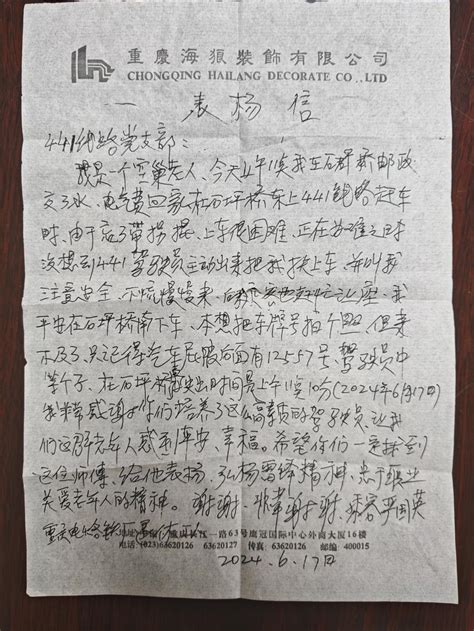 重慶海狼裝飾有限公司
CHONGQING HAILANG DECORATE CO.,LTD
一表杨信
441线路党支部:
我是一个空巢老人、今天上午11点我在石坪桥邮政
交了水、电气费回家、在石坪桥车上441线路赶车
时、由于忘了带拐棍、上车很困难、正在为难之时
没想到441驾驶员主动出来把我扶上车、并叫我
注意安全、不慌慢慢来、让座、我
平安在石坪桥南下车、本想把车牌号拍个照、但来
不及了、只记得汽车屁股后面有12557号驾驶员中
等个子、在石坪桥发出时间是上午11点10分(2024年6月17日)
我非常感谢你们培养了这么高素质的驾驶员、让我
们这群老年人感到平安、幸福。希望你们一定找到
这位师傅、给他表杨、弘杨雷锋精神、忠于职业
关爱老年人的精神。谢谢、非常谢谢、乘客 严国英
重庆电
长江一路63号鹰冠国际中心外商大厦16楼
电话:(023)63620126 63620127 传真:63620126 邮编:400015
2024.6.17日